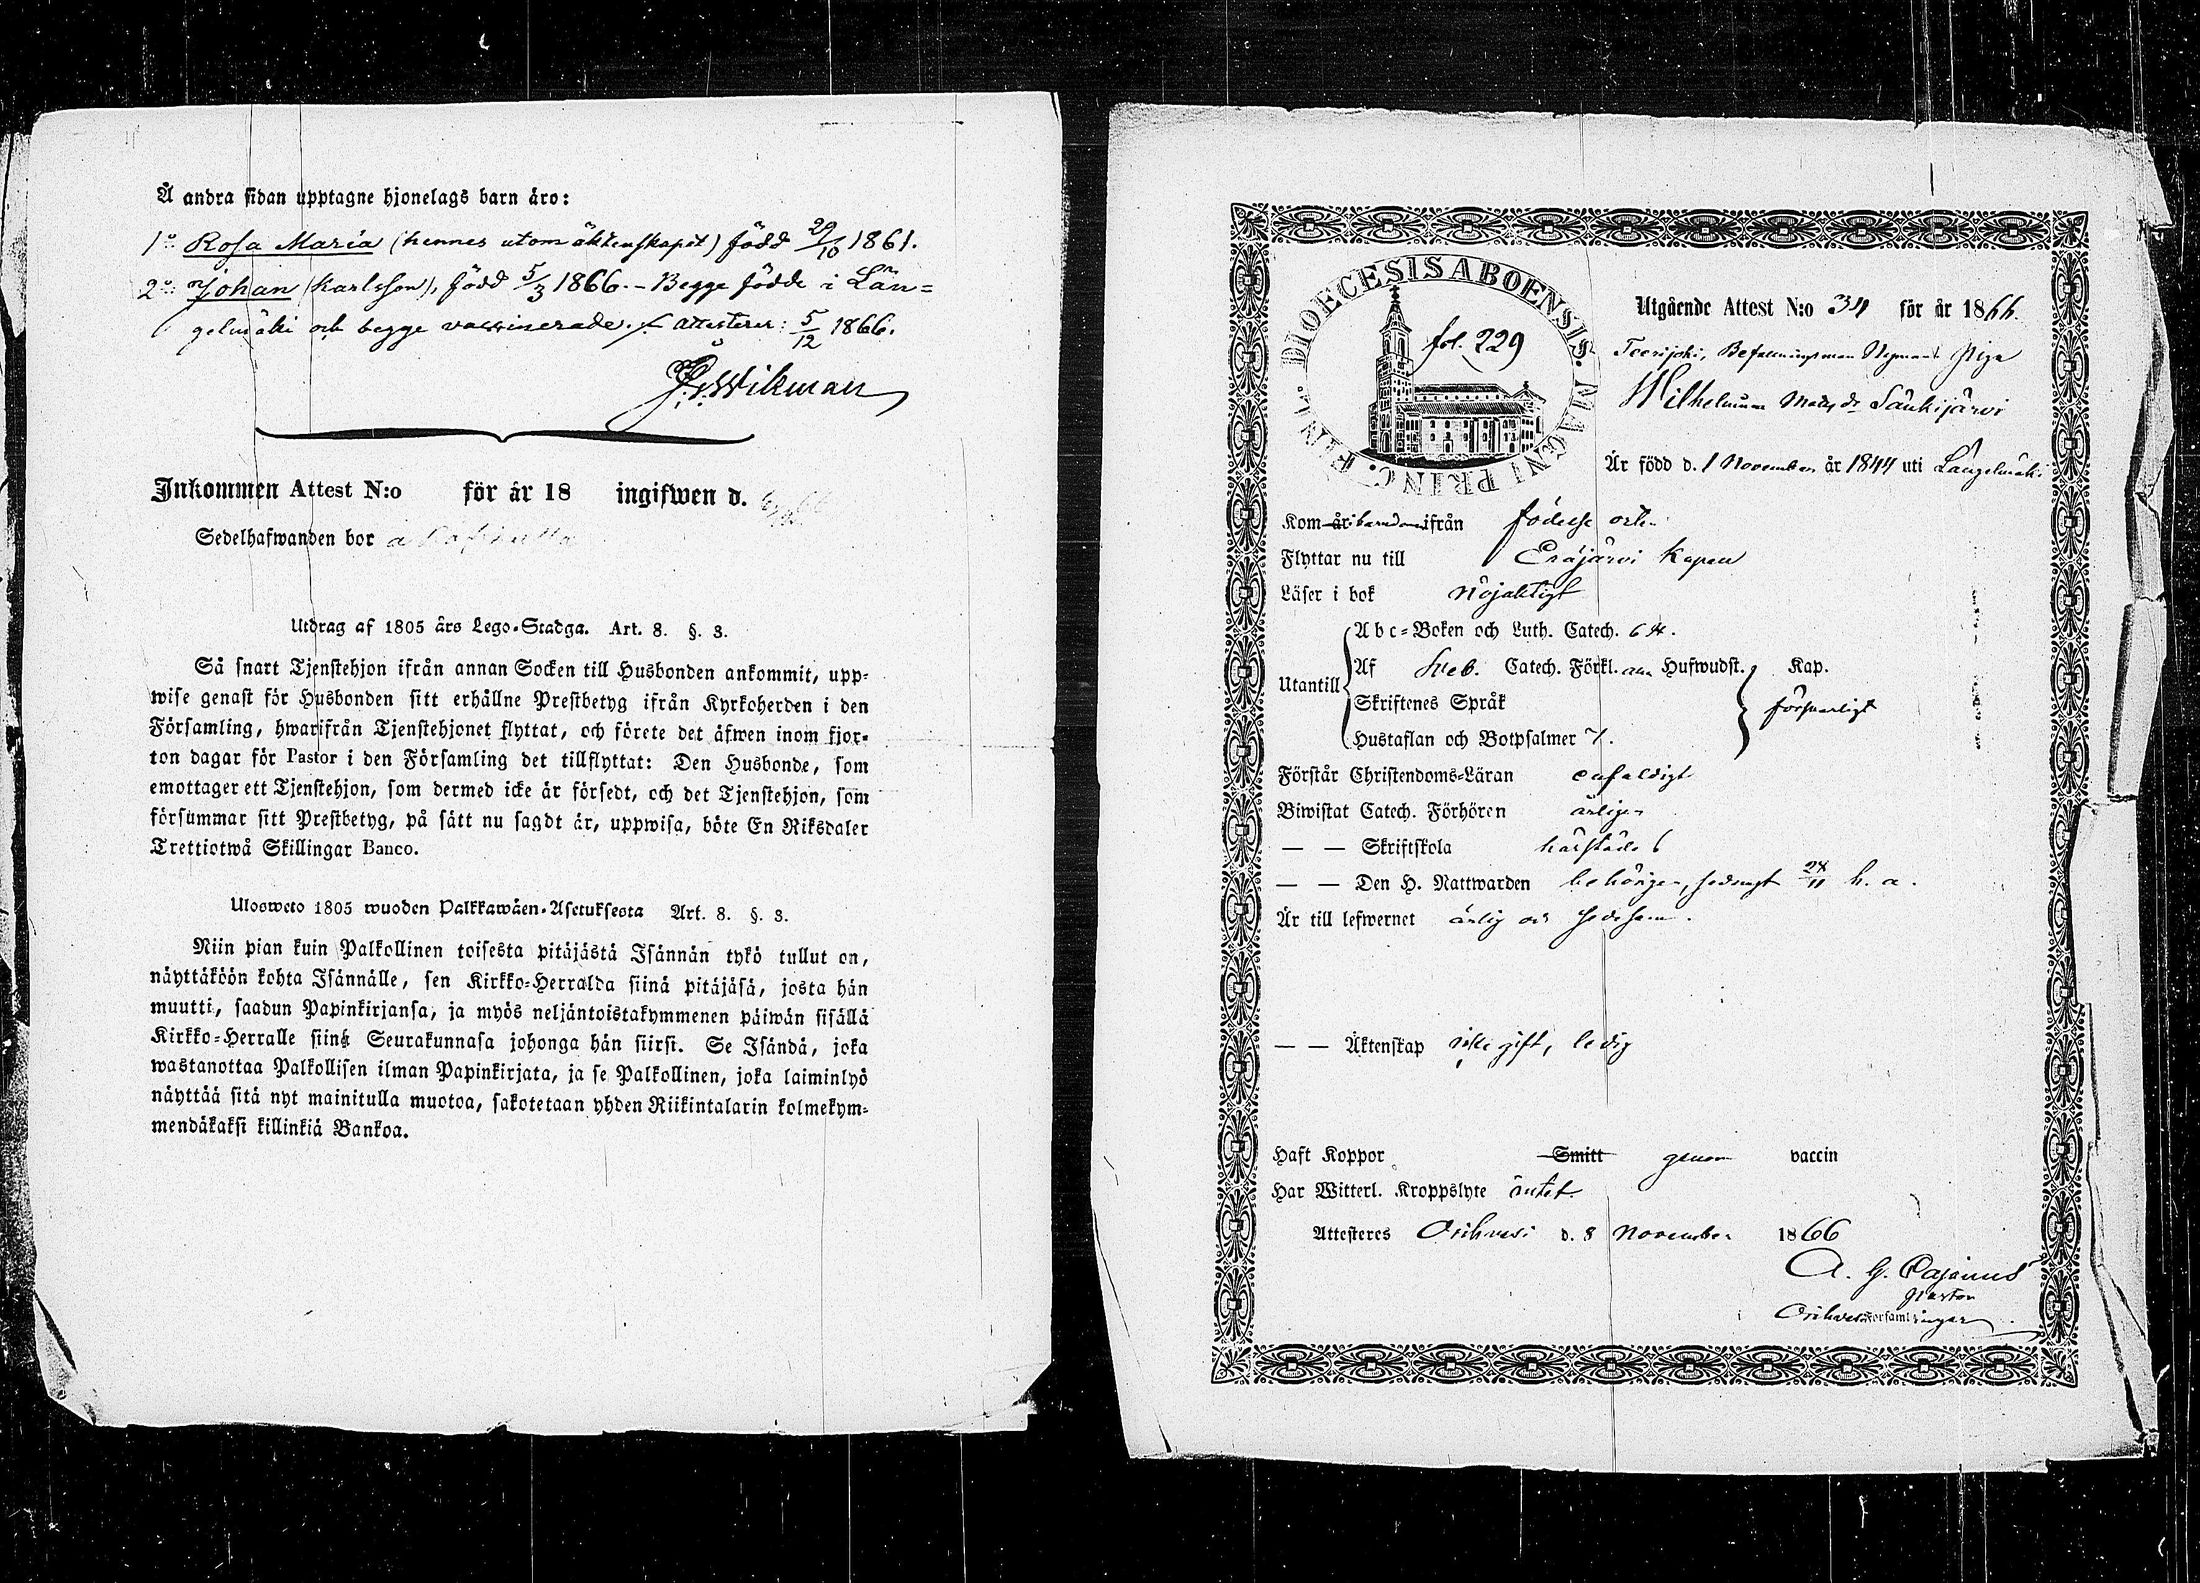 Å andra sidan upptagne hjonelags barn äro:
1:o Rosa Maria (hennes utom äktenskapet) född 29/10 1861.
2:o Johan (Karlsson), född 5/3 1866. - Begge födde i Län=
gelmäki och begge vaccinerade. attesterer: 5/12 1866.
Wikman
Inkommen Attest N:o för år 18 ingifwen d.
Sedelhafwanden bor å
Utdrag af 1805 års Lego-Stadga. Art. 8. §. 3.
Så snart Tjenstehjon ifrån annan Socken till Husbonden ankommit, upp-
wise genast för Husbonden sitt erhållne Prestbetyg ifrån Kyrkoherden i den
Församling, hwarifrån Tjenstehjonet flyttat, och förete det äfwen inom fjor-
ton dagar för Pastor i den Församling det tillflyttat: Den Husbonde, som
emottager ett Tjenstehjon, som dermed icke är försedt, och det Tjenstehjon, som
försummar sitt Prestbetyg, på sätt nu sagdt är, uppwisa, böte En Riksdaler
Trettiotwå Skillingar Banco.
Ulosweto 1805 wuoden Palkkawäen-Asetuksesta Art. 8. §. 3.
Niin pian kuin Palkollinen toisesta pitäjästä Isännän tykö tullut on,
näyttäköön kohta Isännälle, sen Kirkko-Herralda siinä pitäjäsä, josta hän
muutti, saadun Papinkirjansa, ja myös neljäntoistakymmenen päiwän sisällä
Kirkko-Herralle siinä Seurakunnasa johonga hän siirsi. Se Isändä, joka
wastanottaa Palkollisen ilman Papinkirjata, ja se Palkollinen, joka laiminlyö
näyttää sitä nyt mainitulla muotoa, sakotetaan yhden Riikintalarin kolmekym-
mendäkaksi killinkiä Bankoa.
DIOECESIS ABOENSIS. MAGNI PRINC. FINN.
fol. 229
Utgående Attest N:o 34 för år 1866.
Teerijoki, Befallningsman Nymans Piga
Wilhelmina Mats dr Säukijärvi
Är född d. 1 November år 1844 uti Längelmäki
Kom år i barndomen ifrån födelse orten
Flyttar nu till Eräjärvi Kapell
Läser i bok nöjaktigt
Utantill
Abc-Boken och Luth. Catech. 6 St.
Af Sveb. Catech. Förkl. Hufwudst. Kap.
Skriftenes Språk
försvarligt
Hustaflan och Botpsalmer 7.
Förstår Christendoms-Läran enfaldigt
Biwistat Catech. Förhören årligen
— — Skriftskola härstädes
— — Den H. Nattwarden behörigen, sednast 24/11 h. a.
Är till lefwernet ärlig och sedesam.
— — Äktenskap icke gift, ledig
Haft Koppor Smitt genom vaccin
Har Witterl. Kroppslyte intet
Attesteres Orihvesi d. 8 November 1866
A. G. Pajanus
Pastor
Orihvesi Församlingar